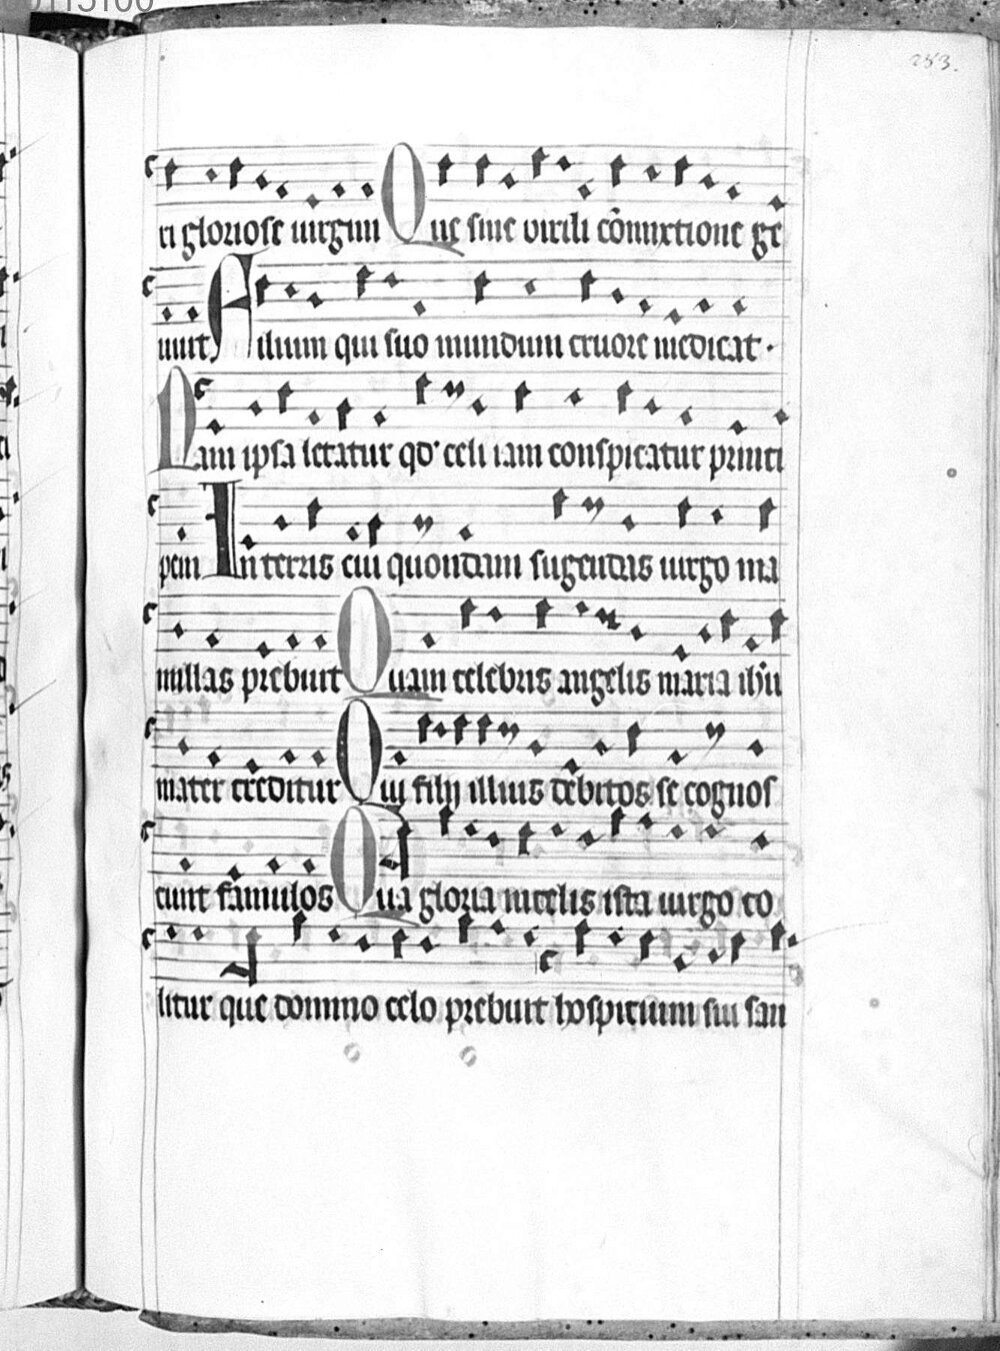 253.
ri gloriose uirgini Que sine virili cōmixtione ge
nuit Filium qui suo mundum cruore medicat ·
Nam ipsa letatur qd' celi iam conspicatur princi
pem In terris cui quondam sugendas uirgo ma
millas prebuit Quam celebris angelis maria ih'u
mater creditur Qui filij illius debitos se cognos
cunt famulos Qua gloria in celis ista uirgo co
litur que domino celo prebuit hospicium sui san